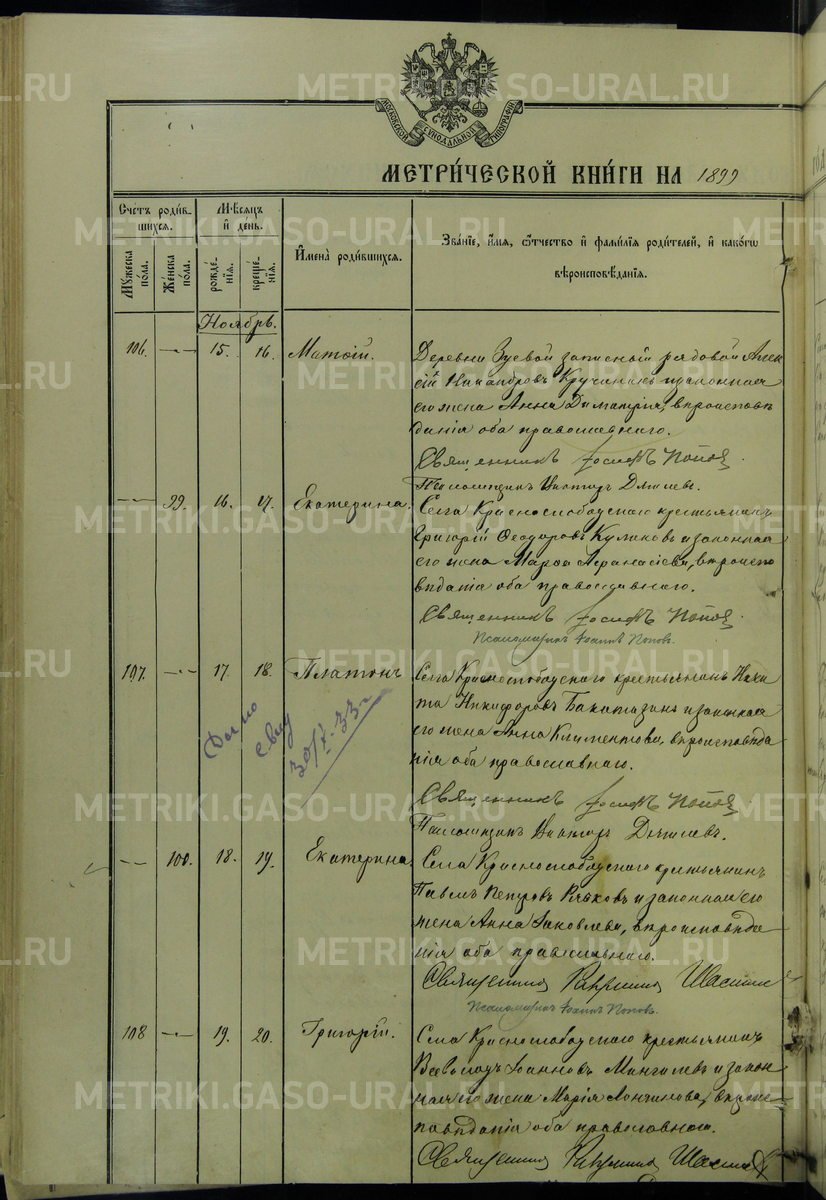 METRIKI.GASO-URAL.RU
МОСКОВСКОЙ СѴНОДАЛЬНОЙ ТИПОГРАФІИ
МЕТРИ́ЧЕСКОЙ КНИ́ГИ НА 1899
Сче́тъ роди́в-
шихся.
Мѣ́сяцъ
и҆ де́нь.
И҆мена̀ роди́вшихся.
Зва́нїе, и҆́мя, ѻ҆́тчество и҆ фами́лїя роди́телей, и҆ како́гѡ
вѣроисповѣ́данїя.
Му́жеска по́ла.
Же́нска по́ла.
рожде́-нїя.
креще́-нїя.
Ноябрь.
106. 15. 16. Матѳій.
Деревни Зуевой запасный рядовой Алек
сій Никандровъ и законная
его жена Анна Димитріева, вѣроисповѣ
данія оба православнаго.
Священникъ Іосифъ Попов
Псаломщикъ Викторъ
99. 16. 17. Екатерина.
Села Краснослободскаго крестьянинъ
Григорій Ѳеодоровъ Куликовъ и законная
его жена Марѳа Аѳанасіева, вѣроиспо
вѣданія оба православнаго.
Священникъ Іосифъ Попов
Псаломщикъ Іоаннъ Поповъ.
107. 17. 18. Платонъ
Села Краснослободскаго крестьянинъ Ники
та Никифоровъ и законная
его жена Анна Климентова, вѣроисповѣда
нія оба православнаго.
Дано свид 30/X-33г
Священникъ Іосифъ Попов
Псаломщикъ Викторъ
100. 18. 19. Екатерина.
Села Краснослободскаго крестьянинъ
Павелъ Петровъ и законная его
жена Анна Іаковлева, вѣроисповѣда
нія оба православнаго.
Священникъ
Псаломщикъ Іоаннъ Поповъ.
108 19. 20. Григорій.
Села Краснослободскаго крестьянинъ
Всеволодъ Іоанновъ Мингалевъ и закон
ная его жена Марія Лонгинова, вѣроис
повѣданія оба православнаго.
Священникъ